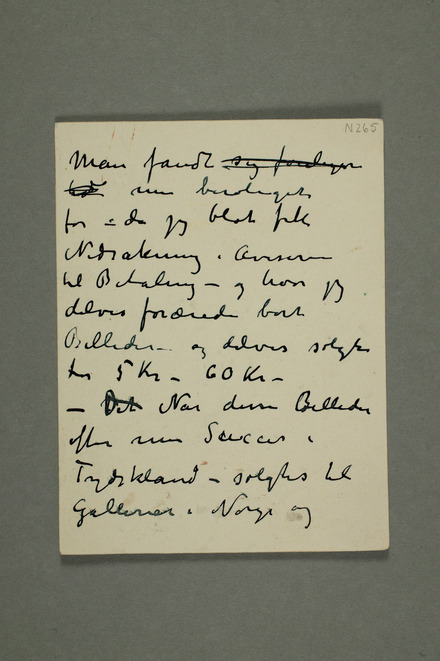 N265
Man fandt sig foruligen
tid min berettiget
for – da jeg blot fik
Nedrakning i Aviserne
til Betaling – og hvor jeg
delvis forærede bort
Billeder – og delvis solgte
for 5 Kr – 60 Kr –
– Det Når disse Billeder
efter min Succes i
Tydskland – solgtes til
Gallerier i Norge og